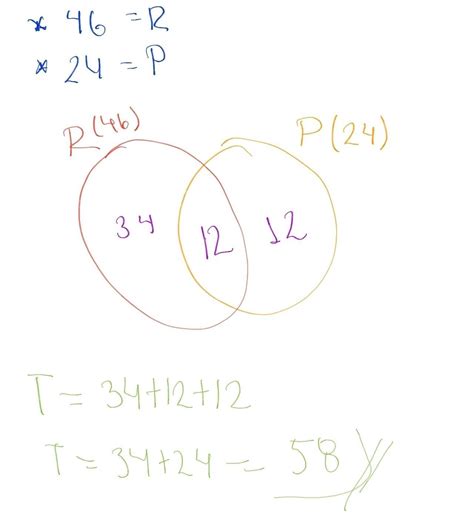 * 46 = R
* 24 = P
R(46)
P(24)
34 12 12
T = 34+12+12
T = 34+24 = 58